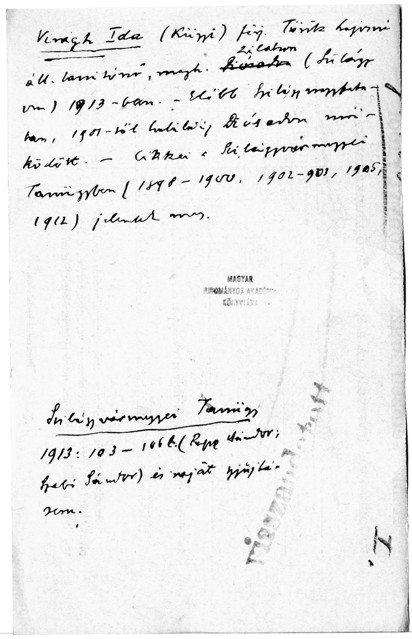 Virágh Ida (Kügyi) férj. Török Lajosné
áll. tanítónő, megh. Zilahon (Szilágy
vm) 1913-ban. – Előbb Szilágy
ban, 1901-től haláláig Diósadon mű-
ködött. – Cikkei a Szilágyvármegyei
Tanügyben (1898–1900, 1902–903, 1905,
1912) jelentek meg.
MAGYAR
TUDOMÁNYOS AKADÉMIA
KÖNYVTÁRA
Szilágyvármegyei Tanügy
1913: 103–106 l. (Papp Sándor;
Szabó Sándor) és saját gyűjté-
sem.
visszaadatott
I.